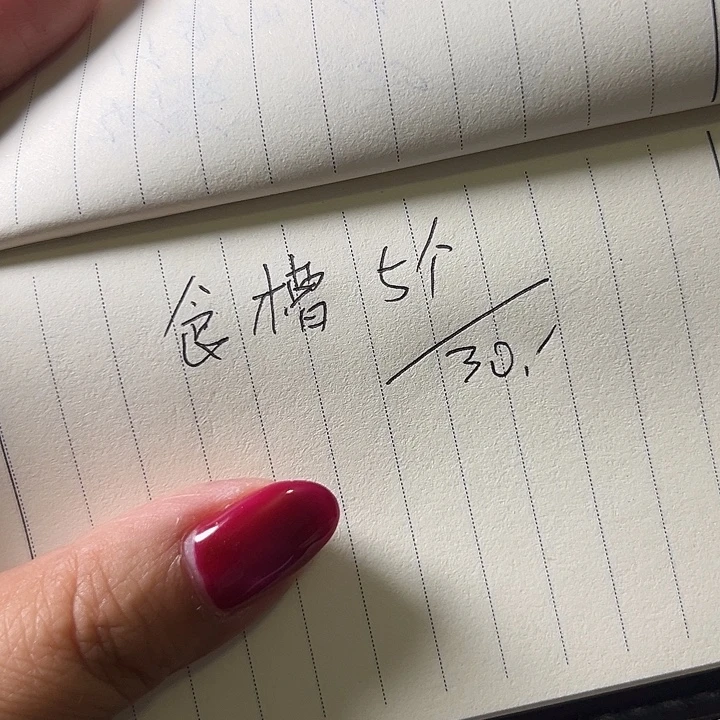 食槽 5个/30.-